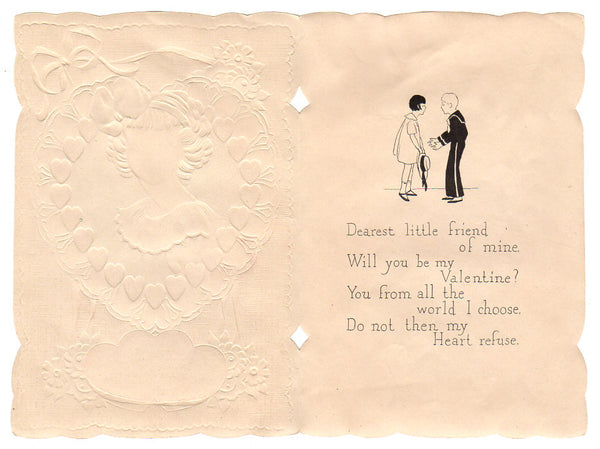 Dearest little friend
of mine.
Will you be my
Valentine?
You from all the
world I choose,
Do not then my
Heart refuse.